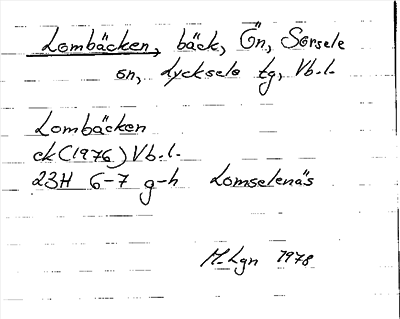 Lombäcken, bäck, Ön, Sorsele
sn, Lycksele tg, Vb.l.
Lombäcken
ek (1976) Vb.l.
23H 6-7 g-h Lomselenäs
M. Lgn 1978